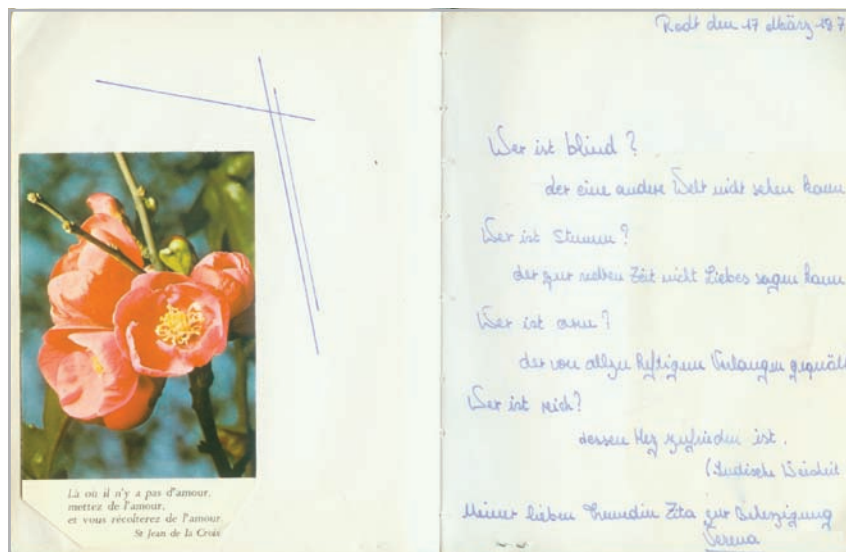 Là où il n'y a pas d'amour,
mettez de l'amour,
et vous récolterez de l'amour
St Jean de la Croix
Rodt den 17 März 197
Wer ist blind?
der eine andere Welt nicht sehen kann
Wer ist Stumm?
der zur rechten Zeit nicht Liebes sagen kann
Wer ist arm?
der von allzu heftigem Verlangen gequält
Wer ist reich?
dessen Herz zufrieden ist.
(Indische Weisheit
Meiner lieben Freundin Zita zur Beherzigung
Verena